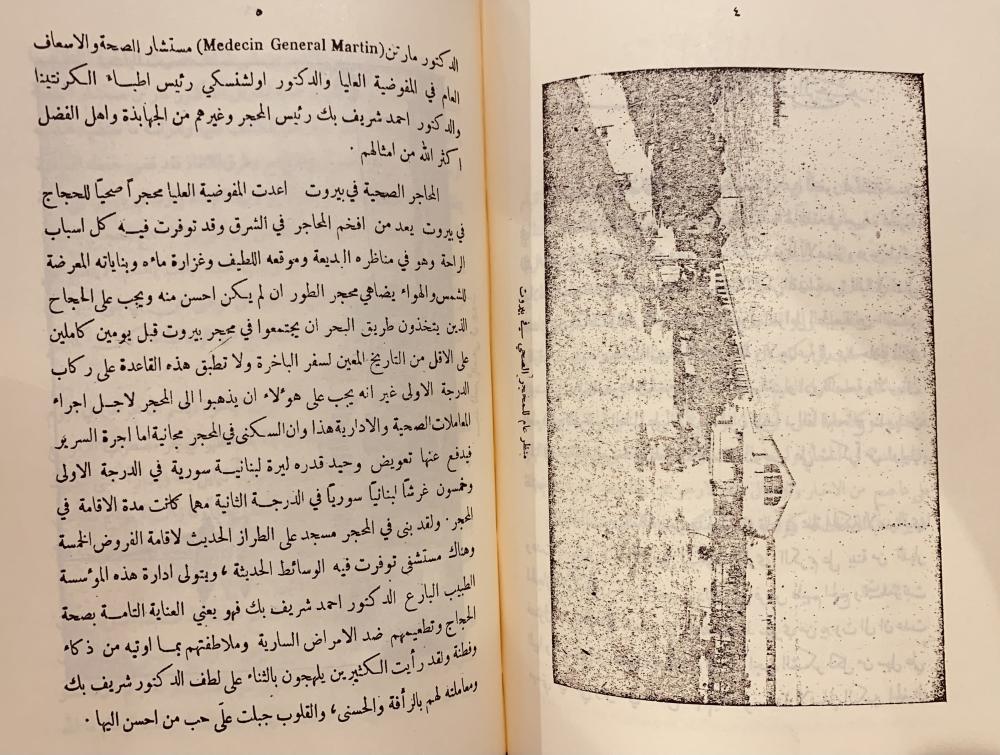 ٤
منظر عام للمحجر الصحي في بيروت
٥
الدكتور مارتن (Medecin General Martin) مستشار الصحة والاسعاف
العام في المفوضية العليا والدكتور اولشنسكي رئيس اطباء الكرنتينا
والدكتور احمد شريف بك رئيس المحجر وغيرهم من الجهابذة واهل الفضل
اكثر الله من امثالهم .
المحاجر الصحية في بيروت اعدت المفوضية العليا محجراً صحياً للحجاج
في بيروت يعد من افخم المحاجر في الشرق وقد توفرت فيه كل اسباب
الراحة وهو في مناظره البديعة وموقعه اللطيف وغزارة مائه وبناياته المعرضة
للشمس والهواء يضاهي محجر الطور ان لم يكن احسن منه ويجب على الحجاج
الذين يتخذون طريق البحر ان يجتمعوا في محجر بيروت قبل يومين كاملين
على الاقل من التاريخ المعين لسفر الباخرة ولا تطبق هذه القاعدة على ركاب
الدرجة الاولى غير انه يجب على هوءلاء ان يذهبوا الى المحجر لاجل اجراء
المعاملات الصحية والادارية هذا وان السكنى في المحجر مجانية اما اجرة السرير
فيدفع عنها تعويض وحيد قدره ليرة لبنانية سورية في الدرجة الاولى
وخمسون غرشاً لبنانياً سورياً في الدرجة الثانية مهما كانت مدة الاقامة في
المحجر . ولقد بنى في المحجر مسجد على الطراز الحديث لاقامة الفروض الخمسة
وهناك مستشفى توفرت فيه الوسائط الحديثة ، ويتولى ادارة هذه الموءسسة
الطبيب البارع الدكتور احمد شريف بك فهو يعني العناية التامة بصحة
الحجاج وتطعيمهم ضد الامراض السارية وملاطفتهم بما اوتيه من ذكاء
وفطنة ولقد رأيت الكثيرين يلهجون بالثناء على لطف الدكتور شريف بك
ومعاملته لهم بالرأفة والحسنى ، والقلوب جبلت علَى حب من احسن اليها .